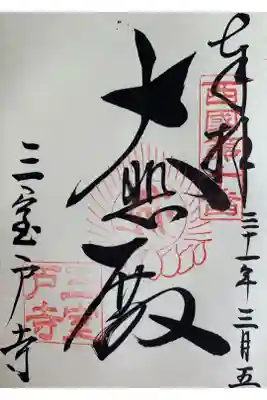 奉拝
三十一年三月五
西國第十番
大悲殿
三室戸寺
三室戸寺